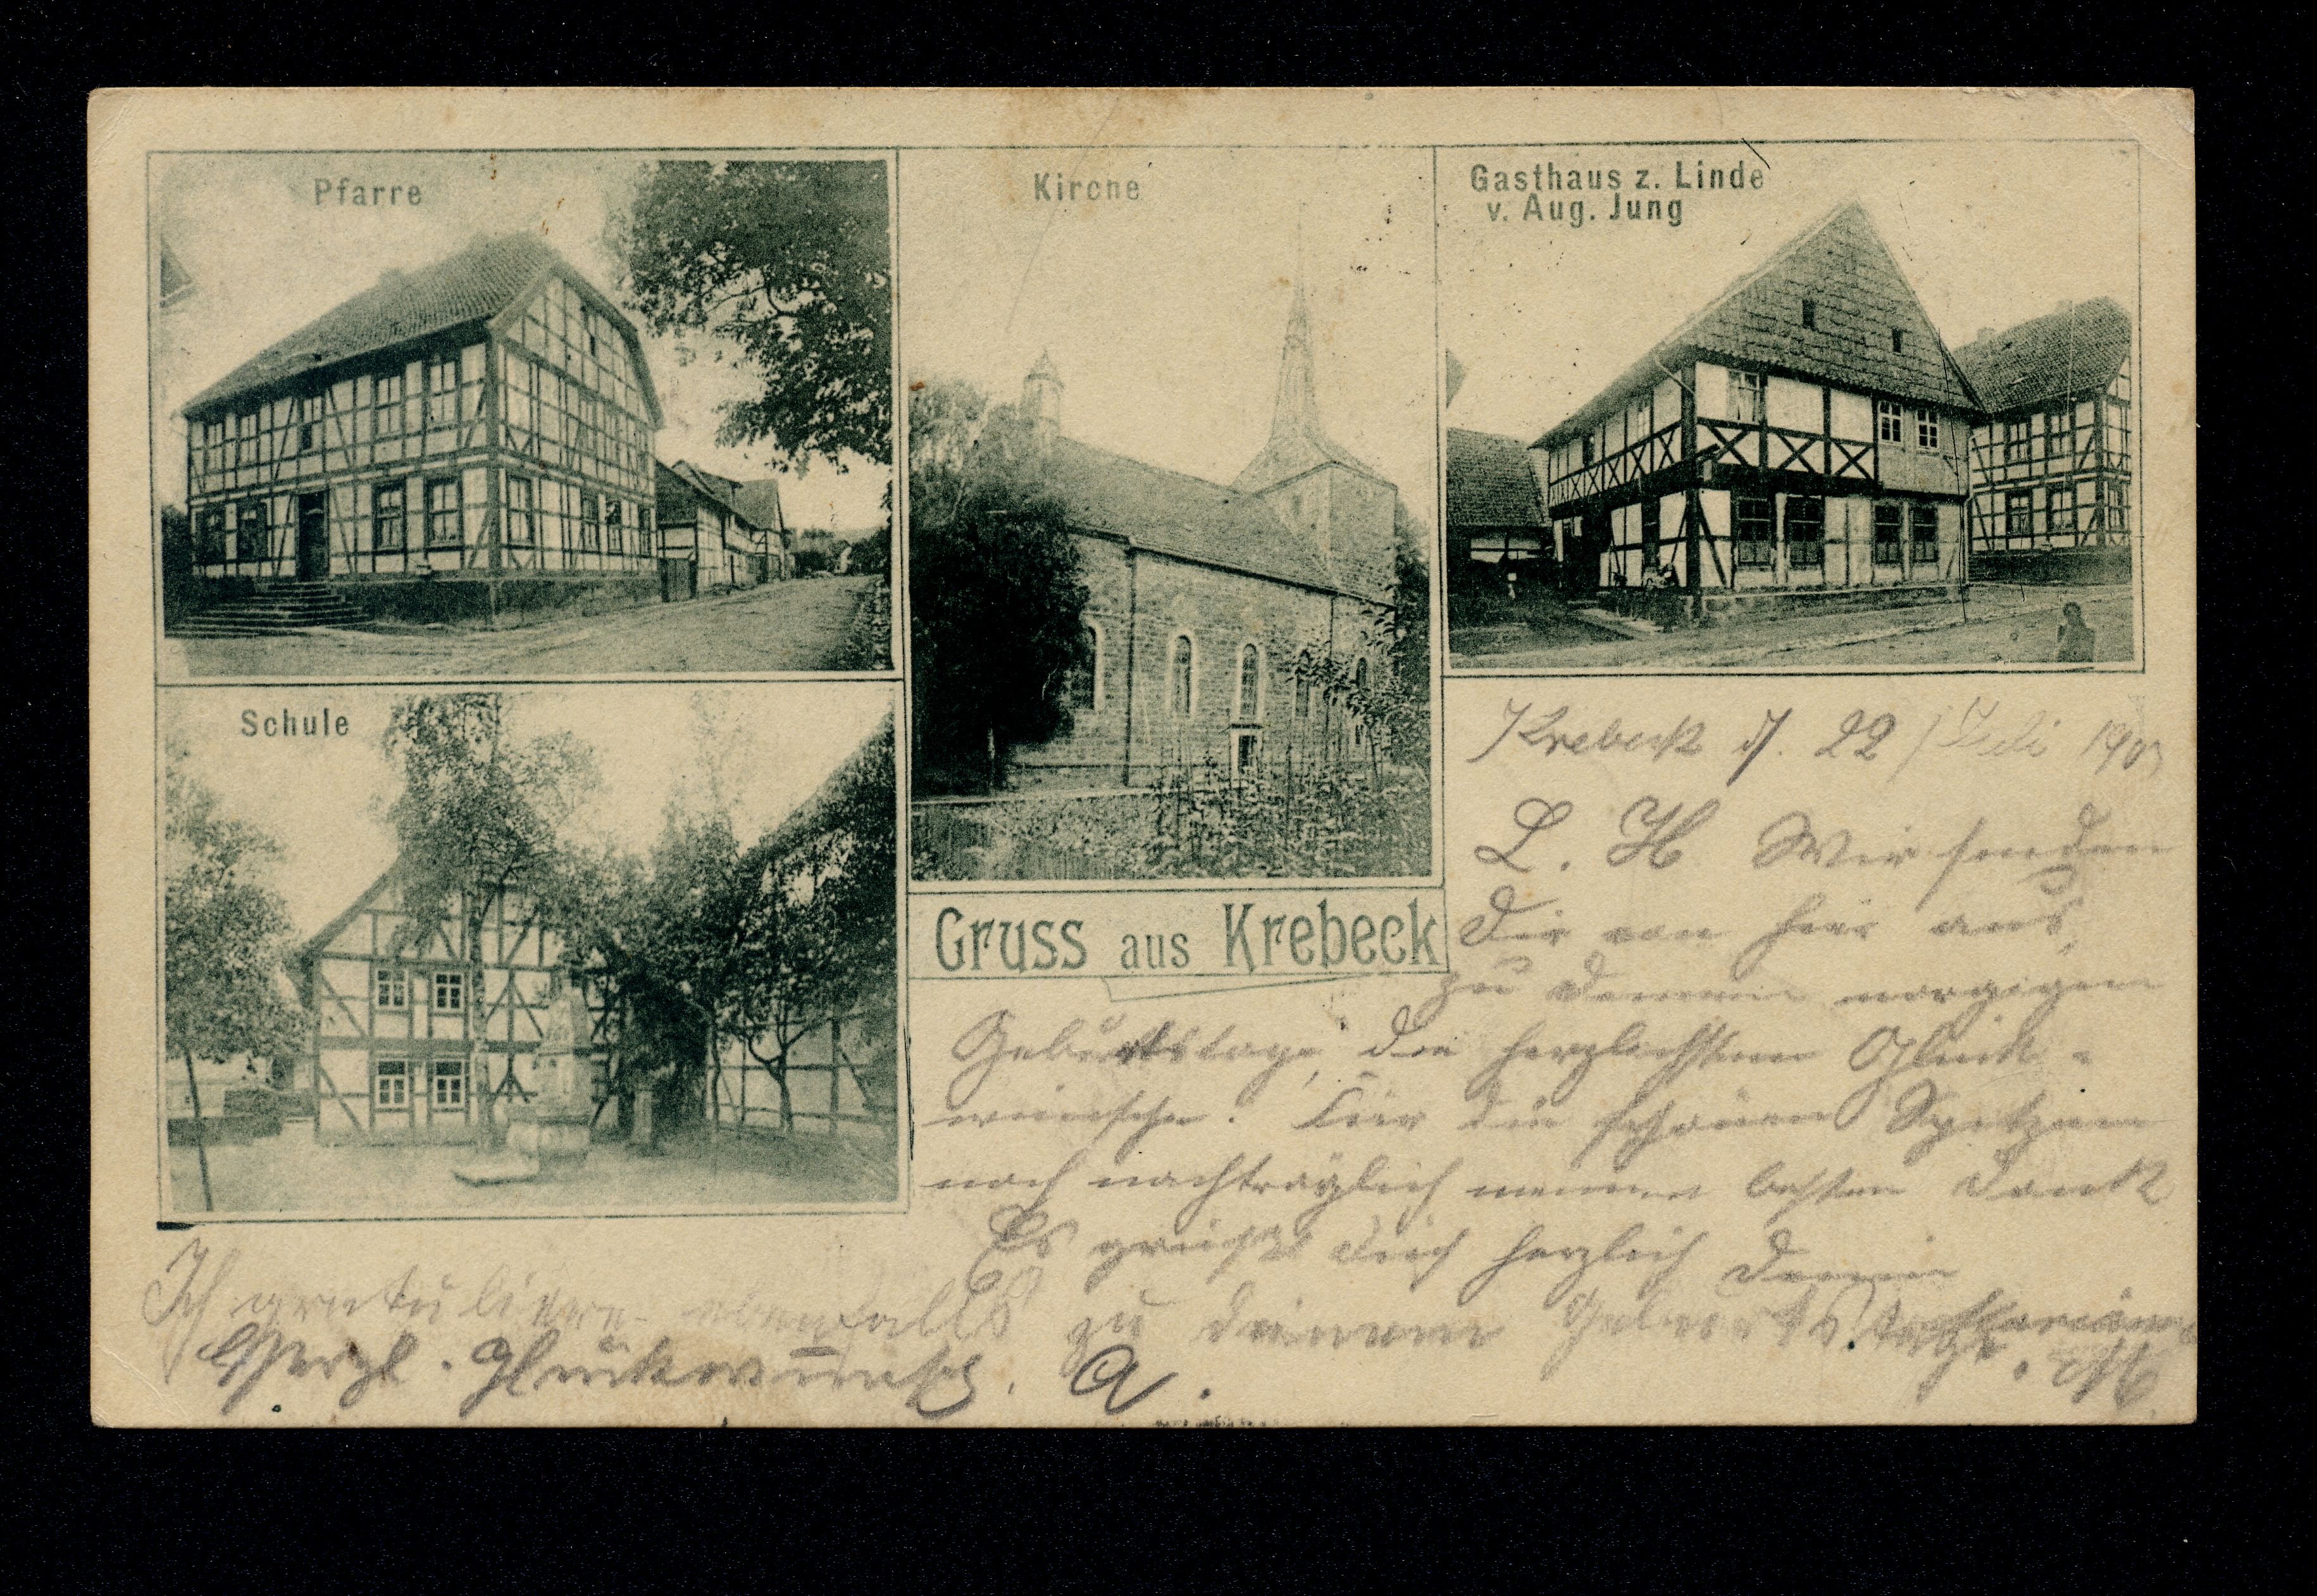 Pfarre
Kirche
Gasthaus z. Linde
v. Aug. Jung
Schule
Gruss aus Krebeck
Krebeck d. 22 Juli 190
L. H. Wir senden
Dir von hier aus,
zu Deinem morgigen
Geburtstage, die herzlichsten Glück-
wünsche. Für die schönen Spitzen
noch nachträglich meinen besten Dank
Es grüßt Dich herzlich Deine
Ich gratuliere ebenfalls zu deinem Geburtstage.
Herzl. Glückwunsch. A.